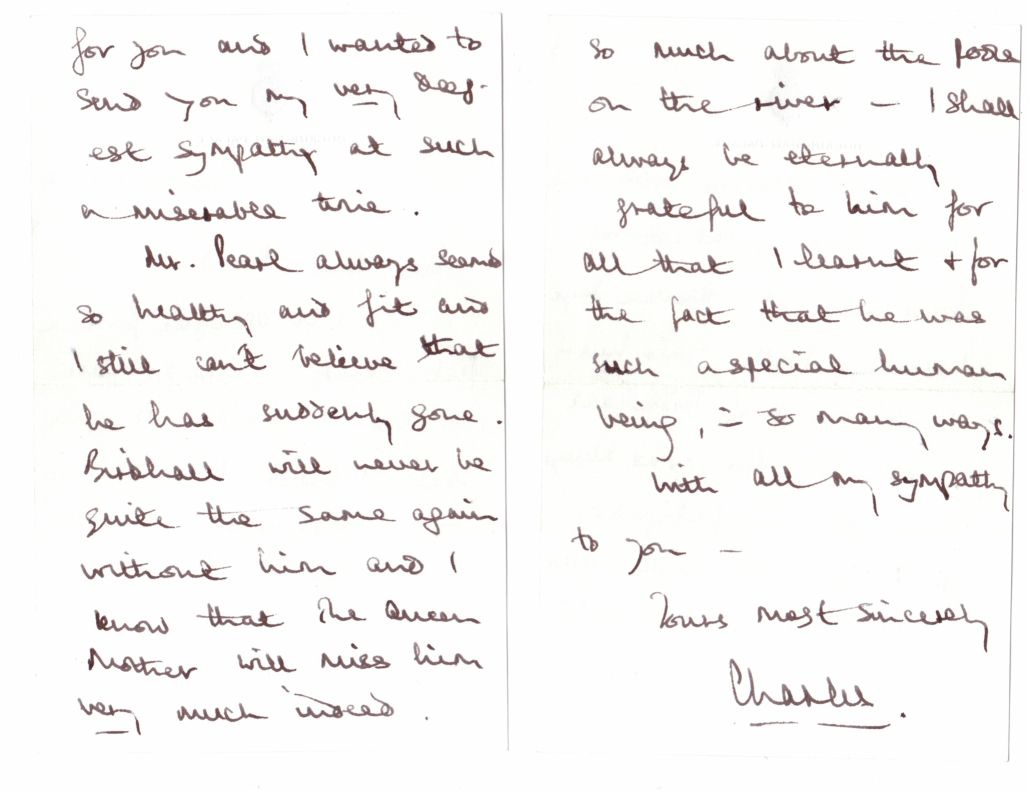 for you and I wanted to
send you my very deep-
est sympathy at such
a miserable time.
Mr. Pearl always seemed
so healthy and fit and
I still can't believe that
he has suddenly gone.
Birkhall will never be
quite the same again
without him and I
know that The Queen
Mother will miss him
very much indeed.
so much about the pools
on the river — I shall
always be eternally
grateful to him for
all that I learnt + for
the fact that he was
such a special human
being, in so many ways.
With all my sympathy
to you —
Yours most sincerely
Charles.